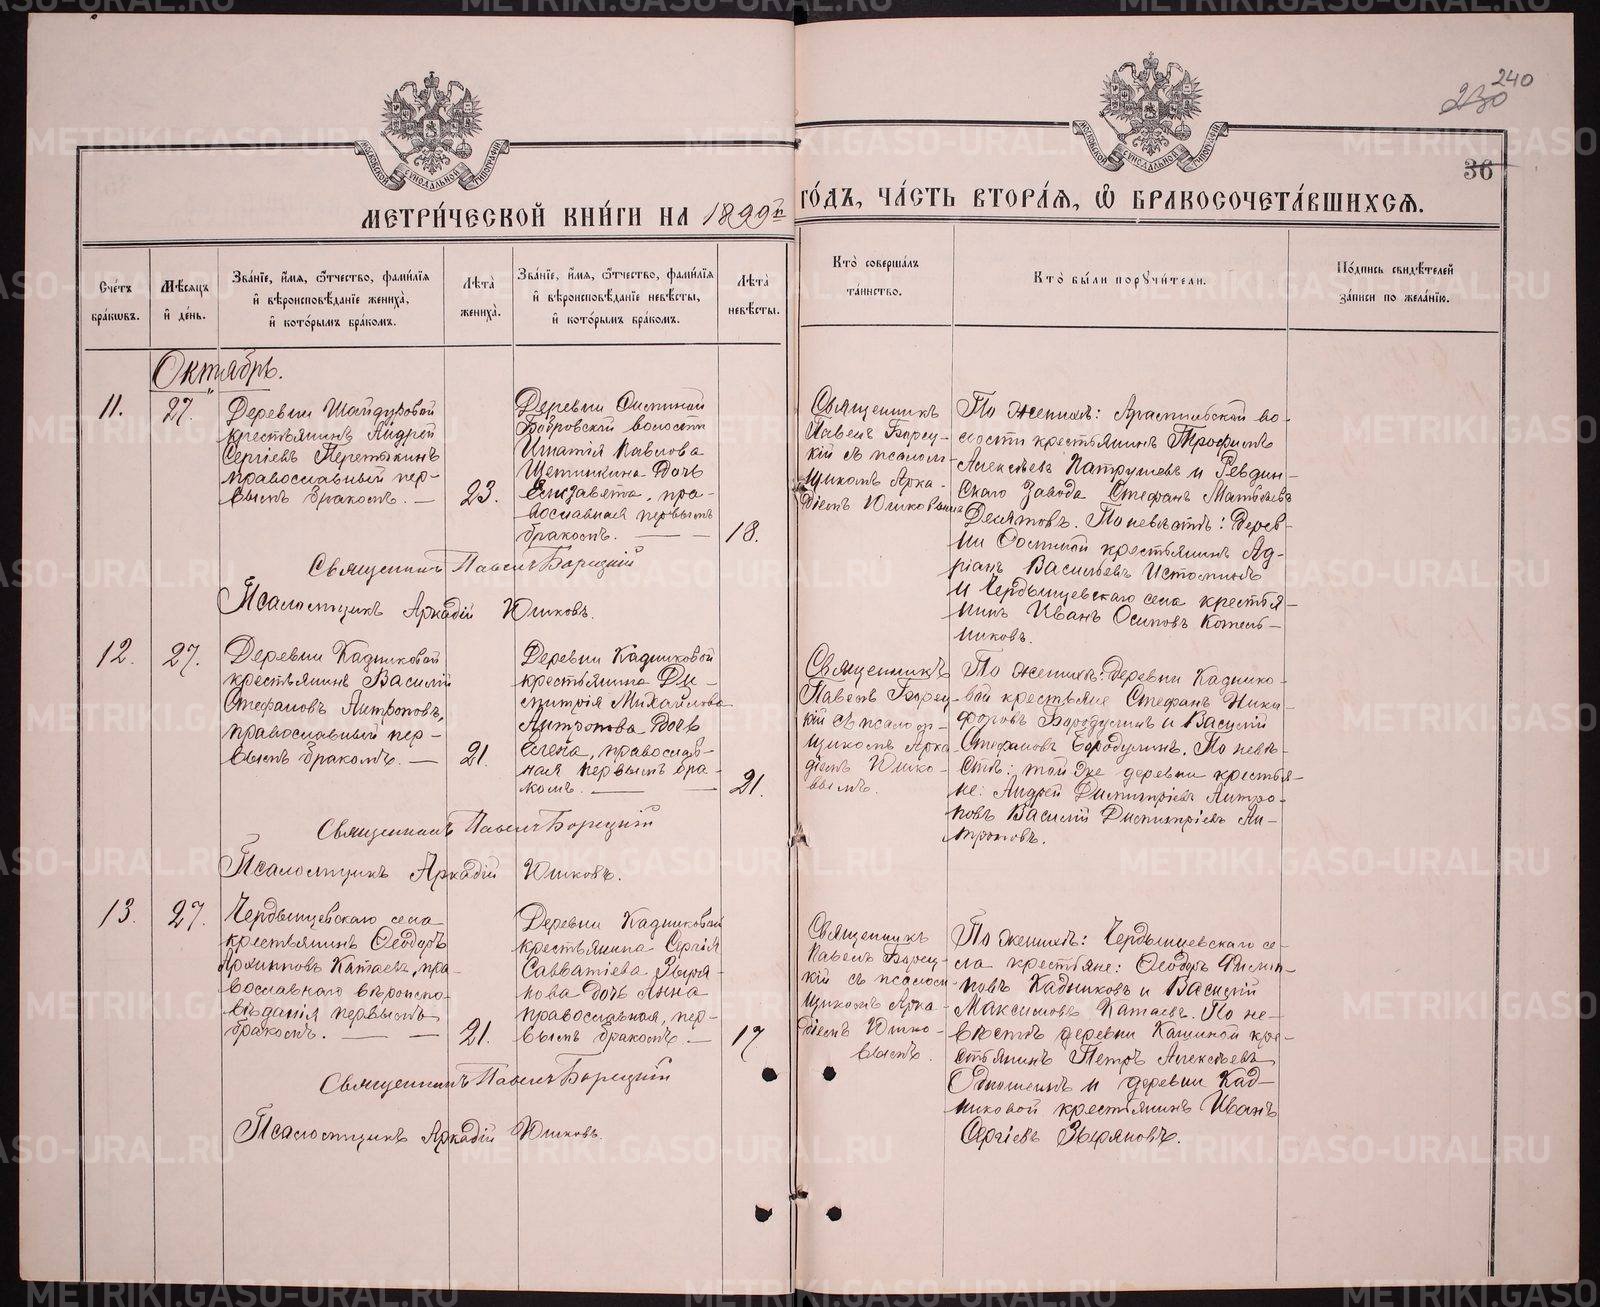 240
230
36
МОСКОВСКОЙ СѴНОДАЛЬНОЙ ТИПОГРАФІИ
МОСКОВСКОЙ СѴНОДАЛЬНОЙ ТИПОГРАФІИ
МЕТРИ́ЧЕСКОЙ КНИ́ГИ НА 1899й ГО́ДЪ, ЧА́СТЬ ВТОРА́Я, Ѽ БРАКОСОЧЕТА́ВШИХСЯ.
Сче́тъ бра́кωвъ.
Мѣ́сяцъ й де́нь.
Зва́нїе, и́мя, ѻ҆́тчество, фами́лїя
и҆ вѣроисповѣ́данїе жениха̀,
и҆ кото́рымъ бра́комъ.
Лѣ́та жениха̀.
Зва́нїе, и́мя, ѻ҆́тчество, фами́лїя
и҆ вѣроисповѣ́данїе невѣ́сты,
и҆ кото́рымъ бра́комъ.
Лѣ́та невѣ́сты.
Кто̀ соверша́лъ
та́инство.
Кто̀ бы́ли порꙋчи́тели.
По́дпись свидѣ́телей
за́писи по жела́нїю.
Октябрь.
11.
27.
Деревни Шайдуровой
крестьянинъ Андрей
Сергіевъ Перетыкинъ
православный пер-
вымъ бракомъ. —
23.
Деревни
Бобровской волости
Игнатія Павлова
Щетинкина дочь
Елизавета, пра-
вославная первымъ
бракомъ. — —
18.
Священникъ
Павелъ Борец-
кій съ псалом-
щикомъ Арка-
діемъ Юшковымъ
По женихѣ: Арамильской во-
лости крестьянинъ Трофимъ
Алексѣевъ Патрушевъ и Ревдин-
скаго завода Стефанъ Матвѣевъ
Десятовъ. По невѣстѣ: Дерев-
ни крестьянинъ Ад-
ріанъ Васильевъ Истоминъ
и Чердынцевскаго села крестья-
нинъ Иванъ Осиповъ Котель-
никовъ.
Священникъ Павелъ Борецкій
Псаломщикъ Аркадій Юшковъ.
12.
27.
Деревни Кадниковой
крестьянинъ Василій
Стефановъ Антроповъ,
православный пер-
вымъ бракомъ. —
21.
Деревни Кадниковой
крестьянина Ди-
митрія Михайлова
Антропова дочь
Елена, православ-
ная первымъ бра-
комъ. — —
21.
Священникъ
Павелъ Борец-
кій съ псалом-
щикомъ Арка-
діемъ Юшко-
вымъ.
По женихѣ: Деревни Каднико-
вой крестьяне Стефанъ Ники-
форовъ Бородулинъ и Василій
Стефановъ Бородулинъ. По невѣ-
стѣ: той же деревни крестья-
не: Андрей Димитріевъ Антро-
повъ Василій Димитріевъ Ан-
троповъ.
Священникъ Павелъ Борецкій
Псаломщикъ Аркадій Юшковъ.
13.
27.
Чердынцевскаго села
крестьянинъ Ѳеодоръ
Архипповъ Катаевъ, пра-
вославнаго вѣроиспо-
вѣданія первымъ
бракомъ. — —
21.
Деревни Кадниковой
крестьянина Сергія
Савватіева Зыря-
нова дочь Анна
православная, пер-
вымъ бракомъ. —
17
Священникъ
Павелъ Борец-
кій съ псалом-
щикомъ Арка-
діемъ Юшко-
вымъ.
По женихѣ: Чердынцевскаго се-
ла крестьяне: Ѳеодоръ Филип-
повъ Кадниковъ и Василій
Максимовъ Катаевъ. По не-
вѣстѣ деревни Кашиной кре-
стьянинъ Петръ Алексѣевъ
и деревни Кад-
никовой крестьянинъ Иванъ
Сергіевъ Зыряновъ.
Священникъ Павелъ Борецкій
Псаломщикъ Аркадій Юшковъ.
METRIKI.GASO-URAL.RU